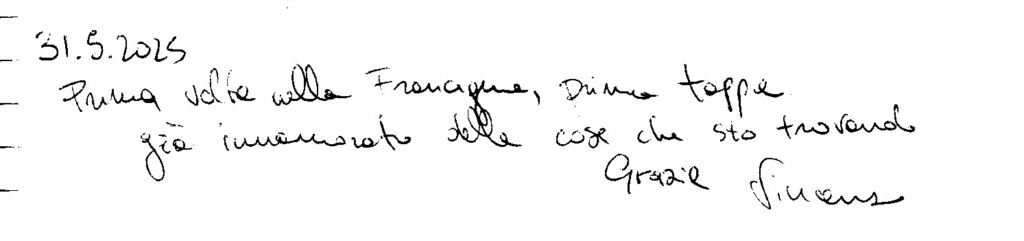 31.5.2025
Prima volta nella Francigena, prima tappa
già innamorato delle cose che sto trovando
Grazie Simone